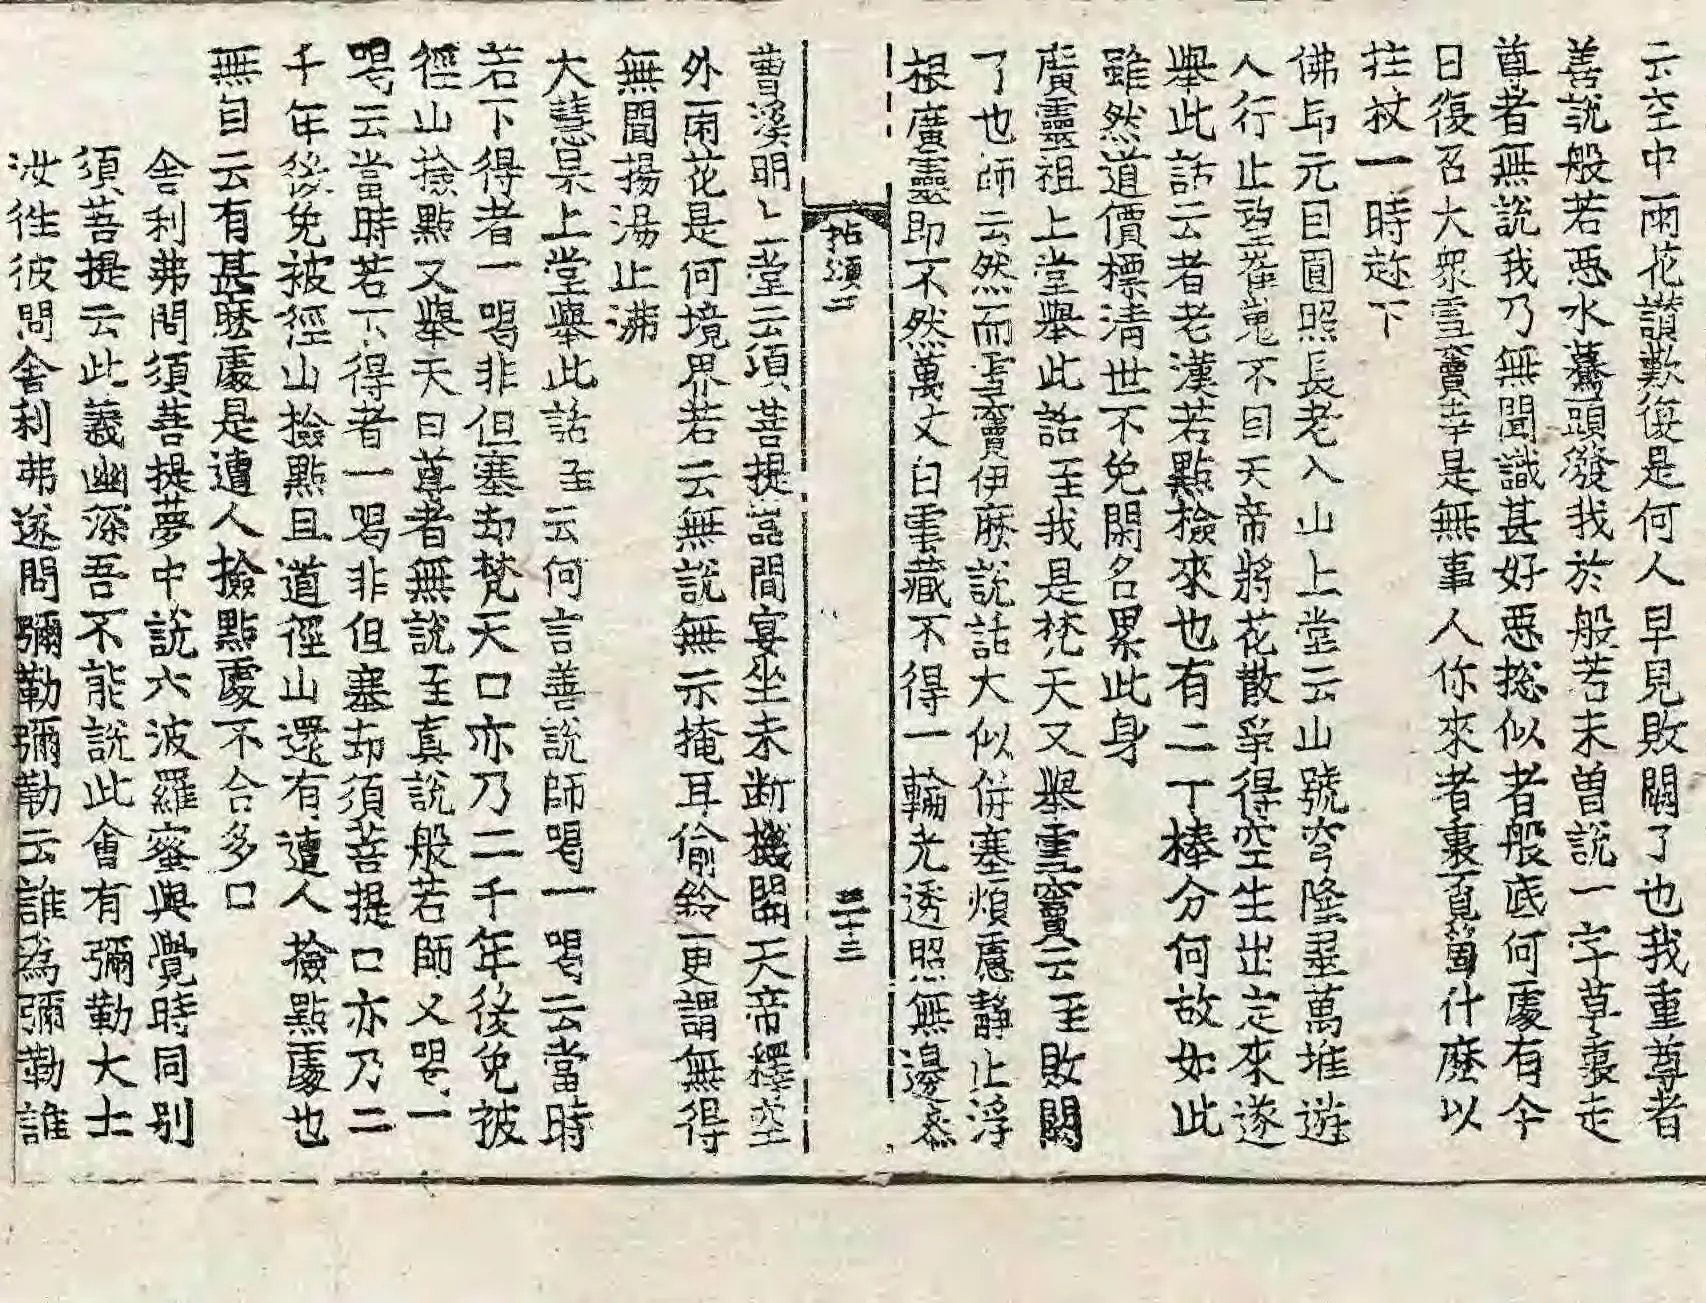 云空中雨花讃歎復是何人早見敗闕了也我重尊者
善說般若惡水驀頭潑我於般若未曾說一字草裏走
尊者無說我乃無聞識甚好惡捴似者般底何處有今
日復召大衆雪竇幸是無事人你來者裏覓箇什麽以
拄杖一時趂下
佛印元因圓照長老入山上堂云山號穹隆壘萬堆遊
人行止望崔嵬不因天帝將花散爭得空生出定來遂
擧此話云者老漢若點檢來也有二丁棒分何故如此
雖然道價標淸世不免閑名累此身
廣靈祖上堂擧此話至我是梵天又擧雪竇云至敗闕
了也師云然而雪竇伊麽說話大似倂塞煩慮靜止浮
根廣靈即不然萬丈白雲藏不得一輪光透照無邊叅
拈頌二
三十三
曹溪明上堂云須菩提嵓間宴坐未断機關天帝釋空
外雨花是何境界若云無說無示掩耳偷鈴更謂無得
無聞揚湯止沸
大慧杲上堂擧此話至云何言善說師喝一喝云當時
若下得者一喝非但塞却梵天口亦乃二千年後免被
徑山撿點又擧天曰尊者無說至真說般若師又喝一
喝云當時若下得者一喝非但塞却須菩提口亦乃二
千年後免被徑山撿點且道徑山還有遭人撿點處也
無自云有甚麽處是遭人撿點處不合多口
舍利弗問須菩提夢中說六波羅蜜與覺時同別
須菩提云此義幽深吾不能說此會有彌勒大士
汝徃彼問舍利弗遂問彌勒彌勒云誰爲彌勒誰